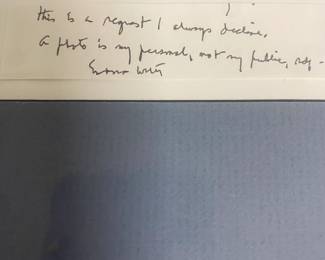 this is a request I always decline.
A photo is my personal, not my public, self -